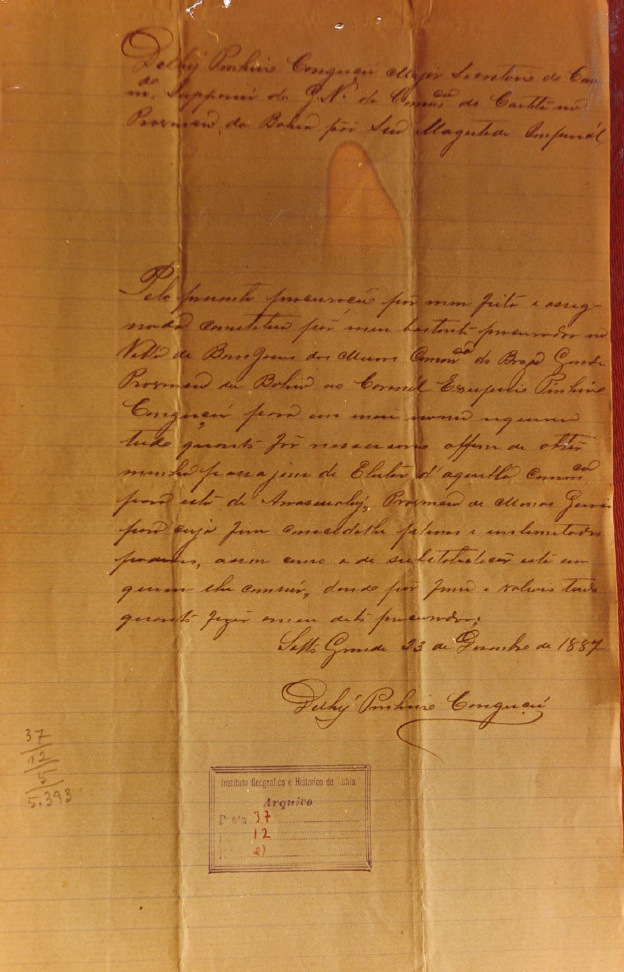 Pinheiro Canguçú Major Secretario do
Superior da G. N. da Comca de Caeteté na
Provincia da Bahia por Sua Magestade Imperial
Pelo presente procuração por mim feita e assig-
nada constituo por meu bastante procurador na
Villa de Bom Jesus dos Meiras Comca do Brejo Grande
Provincia da Bahia ao Coronel Exuperio Pinheiro
Canguçú para em meu nome requerer
tudo quanto fôr necessario affim de obter
minha passagem de Eleitor d'aquella Comca
para esta de Arassuahy, Provincia de Minas Geraes
para cujo fim concedolhe plenos e illimitados
poderes, assim como o de substabelecer esta em
quem lhe convier, dando por firme e valioso tudo
quanto fizer o meu dito procurador.
Salto Grande 23 de Dezembro de 1887
Pinheiro Canguçú
37
12
5
5.393
Instituto Geografico e Historico da Bahia
Arquivo
Pasta 37
12